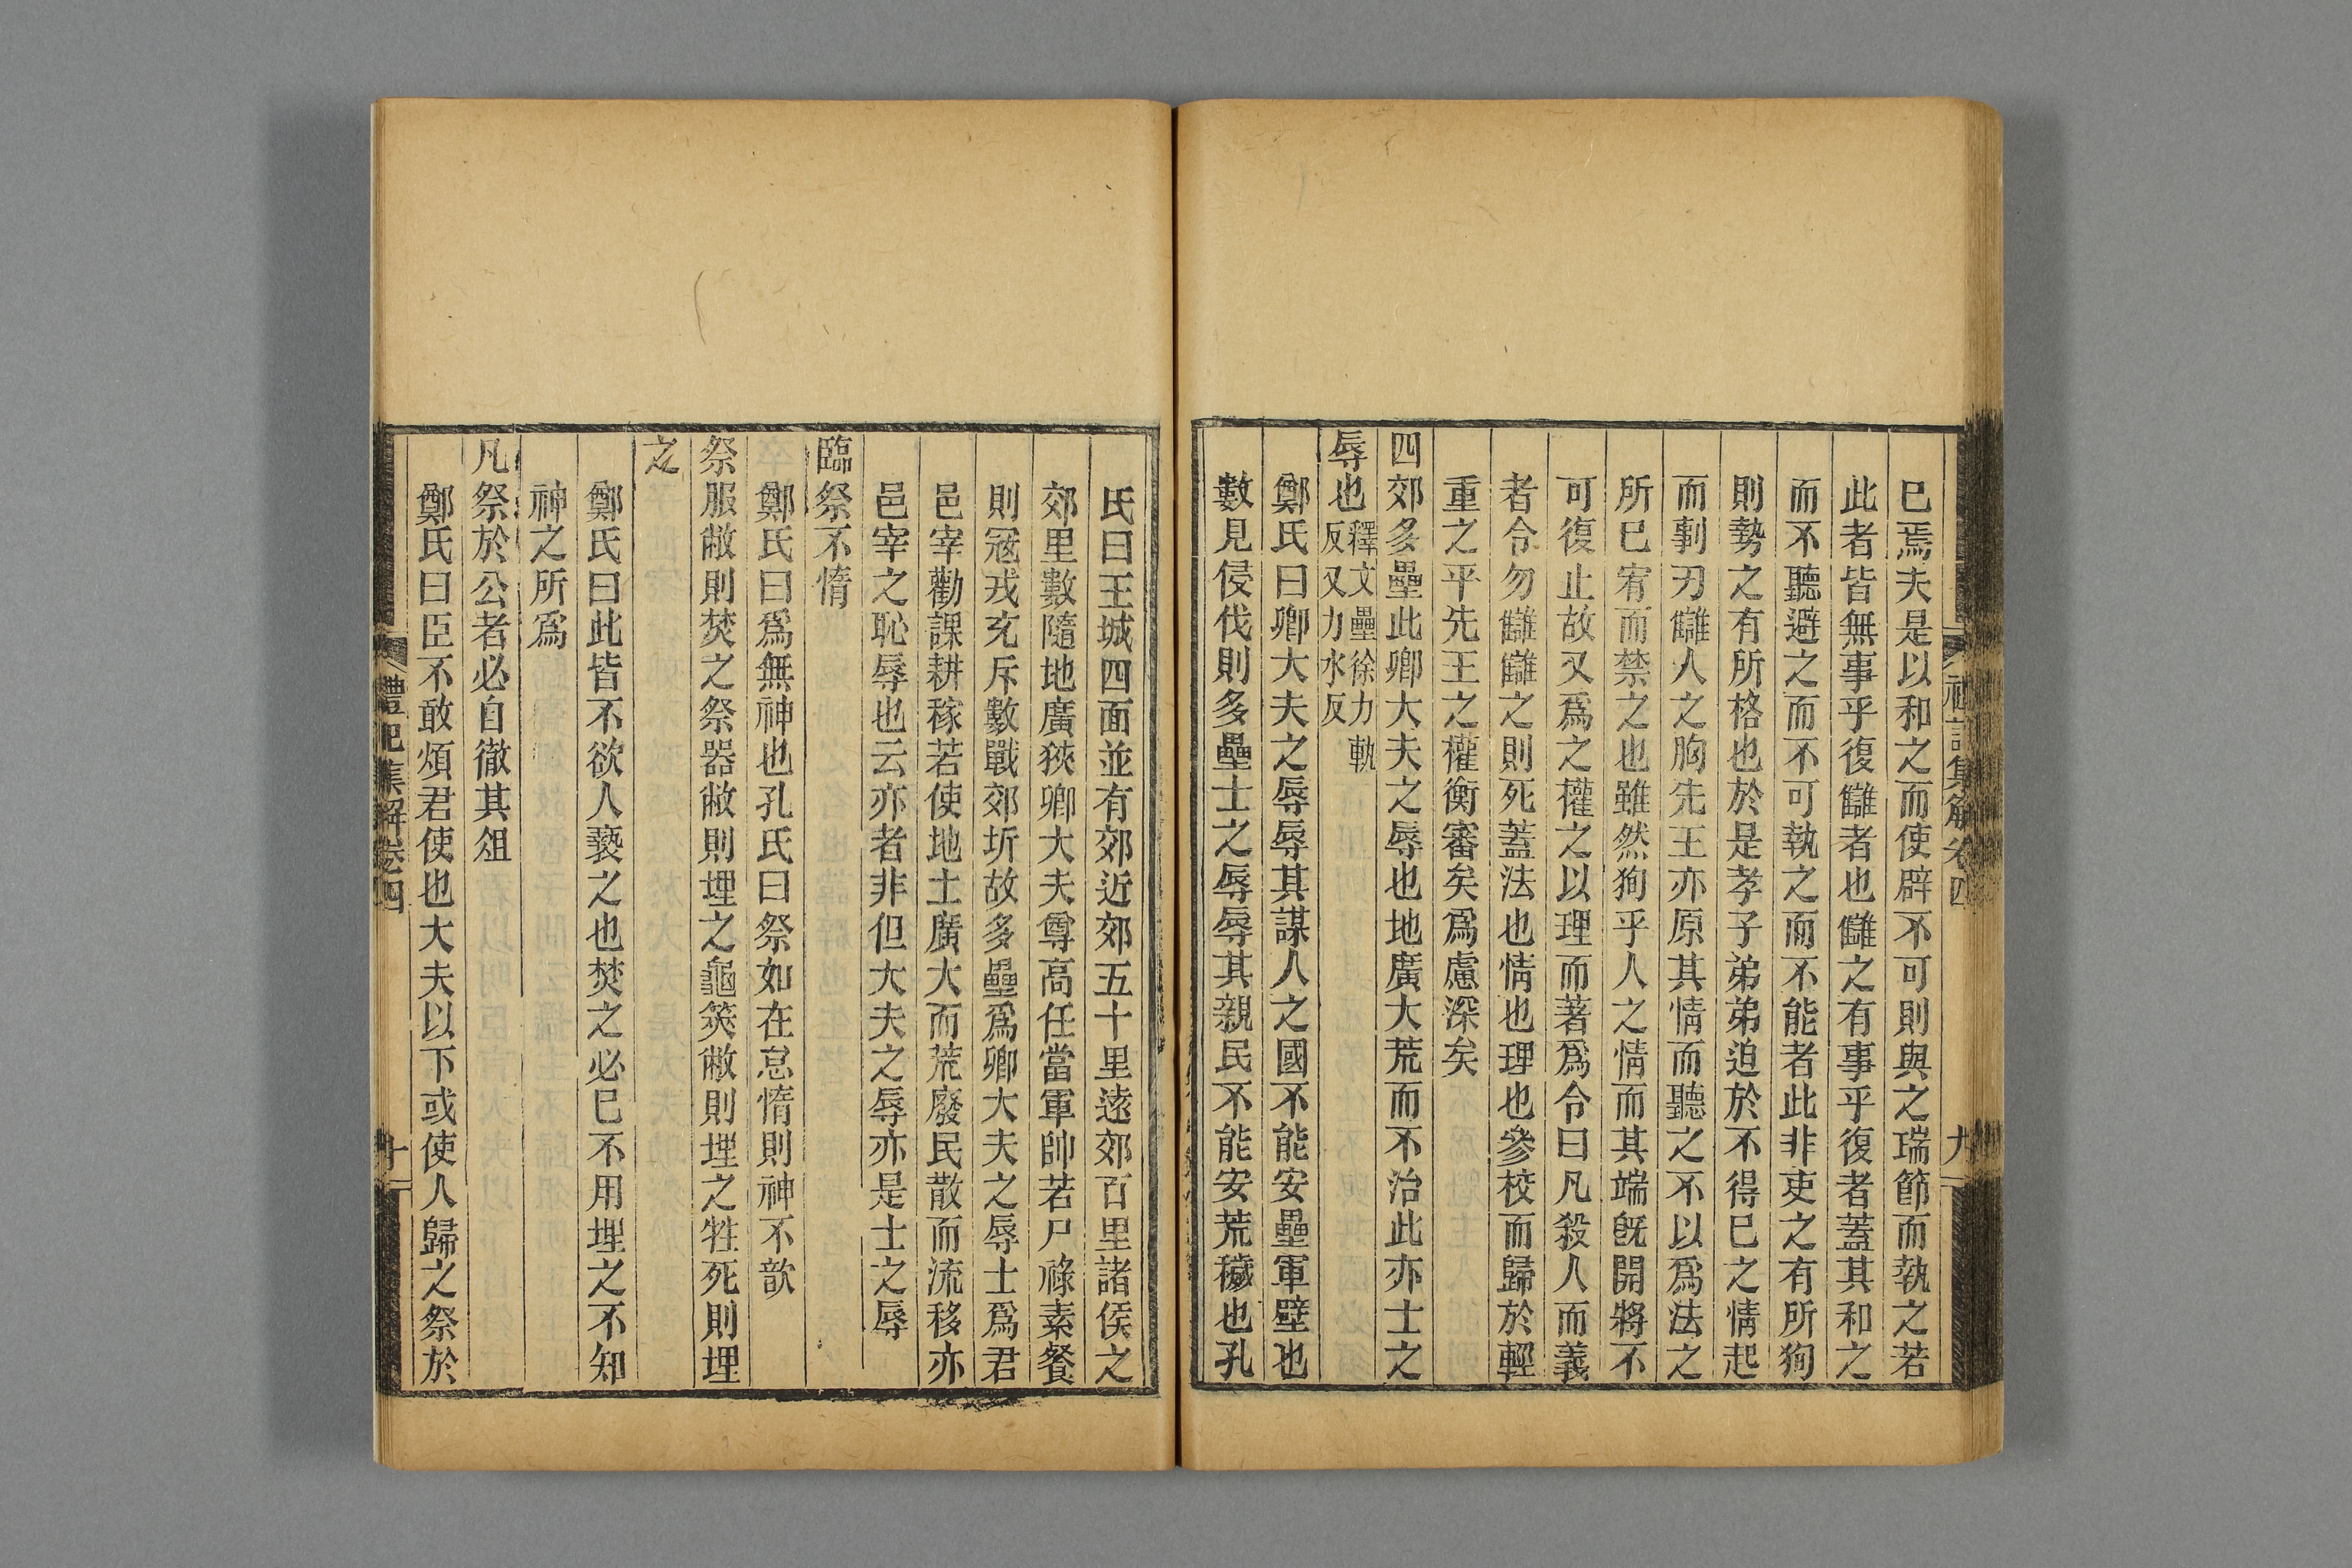 禮記集解卷四
九
巳焉夫是以和之而使辟不可則與之瑞節而執之若
此者皆無事乎復讎者也讎之有事乎復者蓋其和之
而不聽避之而不可執之而不能者此非吏之有所狥
則勢之有所格也於是孝子弟弟迫於不得巳之情起
而剚刃讎人之胸先王亦原其情而聽之不以爲法之
所巳宥而禁之也雖然狥乎人之情而其端旣開將不
可復止故又爲之權之以理而著爲令曰凡殺人而義
者令勿讎讎之則死蓋法也情也理也參校而歸於輕
重之平先王之權衡審矣爲慮深矣
四郊多壘此卿大夫之辱也地廣大荒而不治此亦士之
辱也釋文壘徐力軌反又力水反
鄭氏曰卿大夫之辱辱其謀人之國不能安壘軍壁也
數見侵伐則多壘士之辱辱其親民不能安荒穢也孔
氏曰王城四面並有郊近郊五十里遠郊百里諸侯之
郊里數隨地廣狹卿大夫尊高任當軍帥若尸祿素餐
則冦戎充斥數戰郊圻故多壘爲卿大夫之辱士爲君
邑宰勸課耕稼若使地土廣大而荒廢民散而流移亦
邑宰之恥辱也云亦者非但大夫之辱亦是士之辱
臨祭不惰
鄭氏曰爲無神也孔氏曰祭如在怠惰則神不歆
祭服敝則焚之祭器敝則埋之龜筴敝則埋之牲死則埋
之
鄭氏曰此皆不欲人褻之也焚之必巳不用埋之不知
神之所爲
凡祭於公者必自徹其俎
鄭氏曰臣不敢煩君使也大夫以下或使人歸之祭於
禮記集解卷四
十